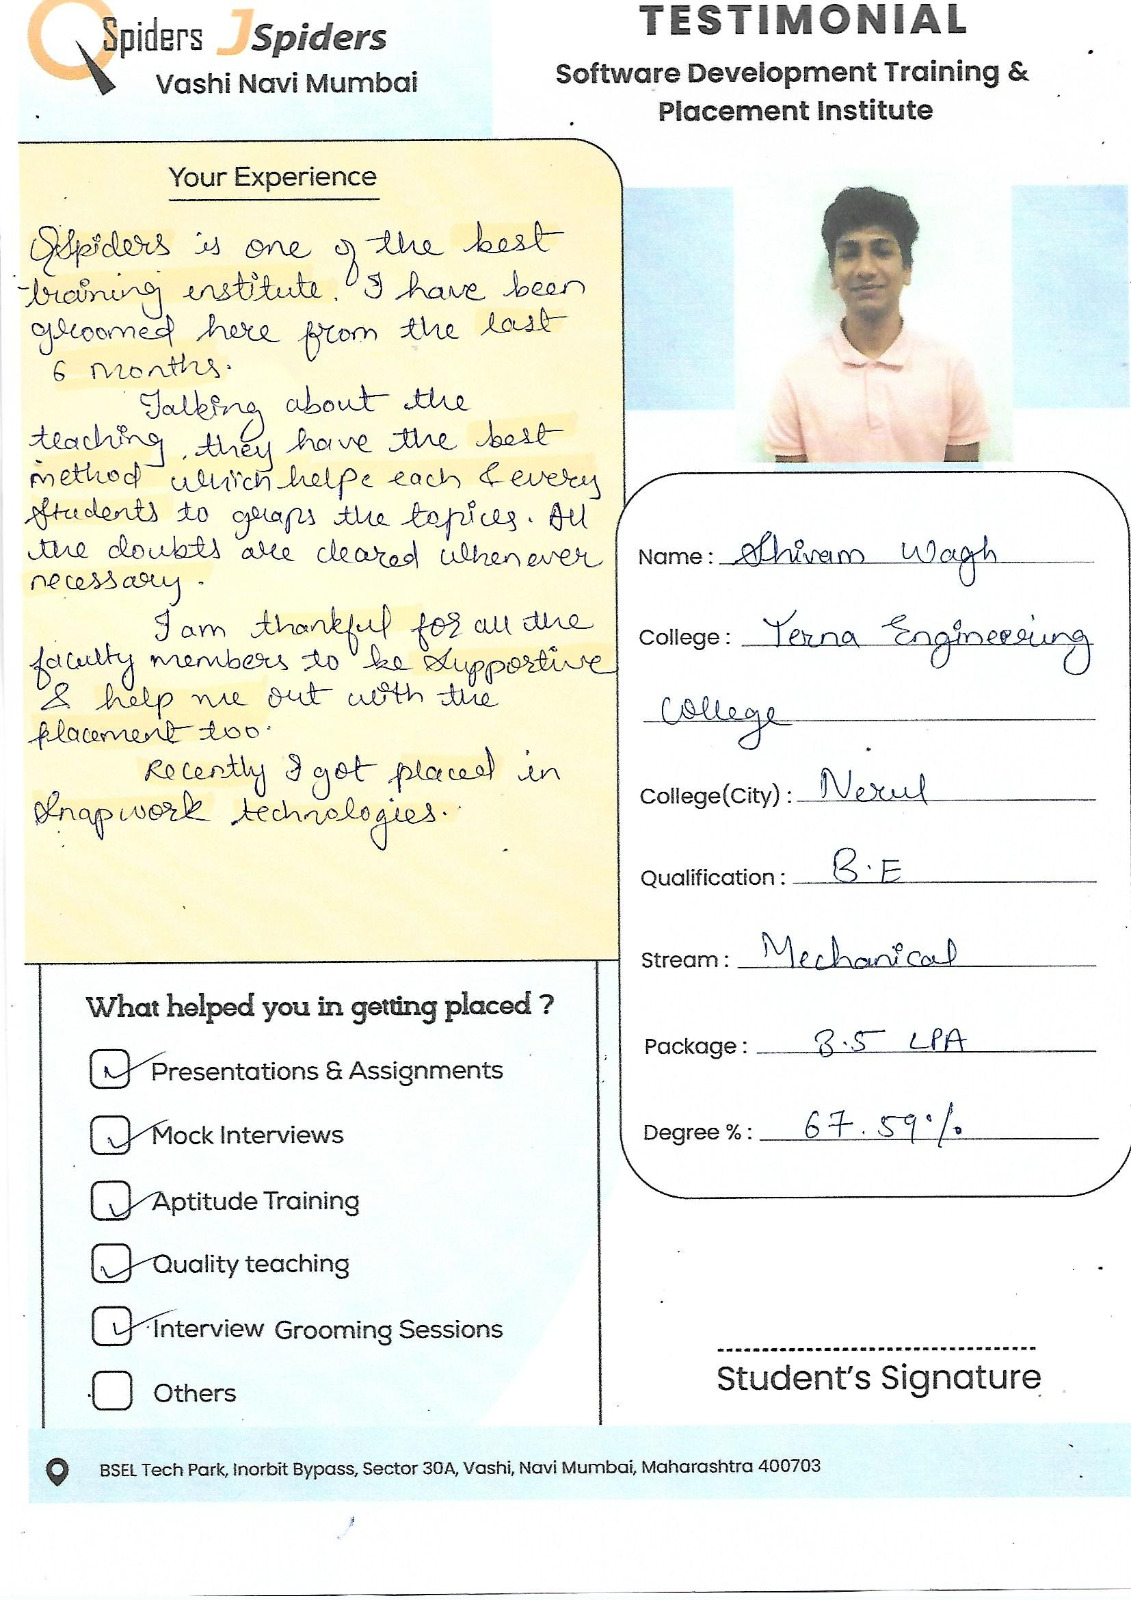 QSpiders JSpiders
Vashi Navi Mumbai
TESTIMONIAL
Software Development Training &
Placement Institute
Your Experience
QSpiders is one of the best
training institute. I have been
groomed here from the last
6 months.
Talking about the
teaching, they have the best
method which helps each & every
students to graps the topics. All
the doubts are cleared whenever
necessary.
I am thankful for all the
faculty members to be supportive
& help me out with the
placement too.
Recently I got placed in
Snapwork technologies.
Name : Shivam Wagh
College : Terna Engineering
College
College(City) : Nerul
Qualification : B.E
Stream : Mechanical
Package : 3.5 LPA
Degree % : 67.59%
What helped you in getting placed ?
Presentations & Assignments
Mock Interviews
Aptitude Training
Quality teaching
Interview Grooming Sessions
Others
Student's Signature
BSEL Tech Park, Inorbit Bypass, Sector 30A, Vashi, Navi Mumbai, Maharashtra 400703